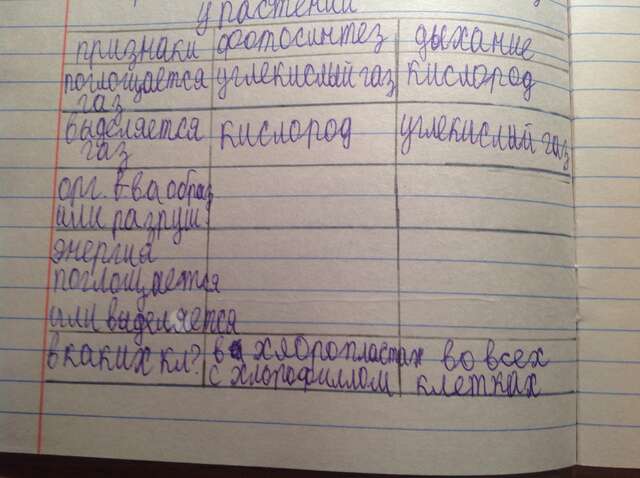 у растений
признаки фотосинтез дыхание
поглощается углекислый газ кислород
газ
выделяется кислород углекислый газ
газ
орг. в-ва образ
или разруш
энергия
поглощается
или выделяется
в каких кл? в хлоропластах во всех
с хлорофиллом клетках